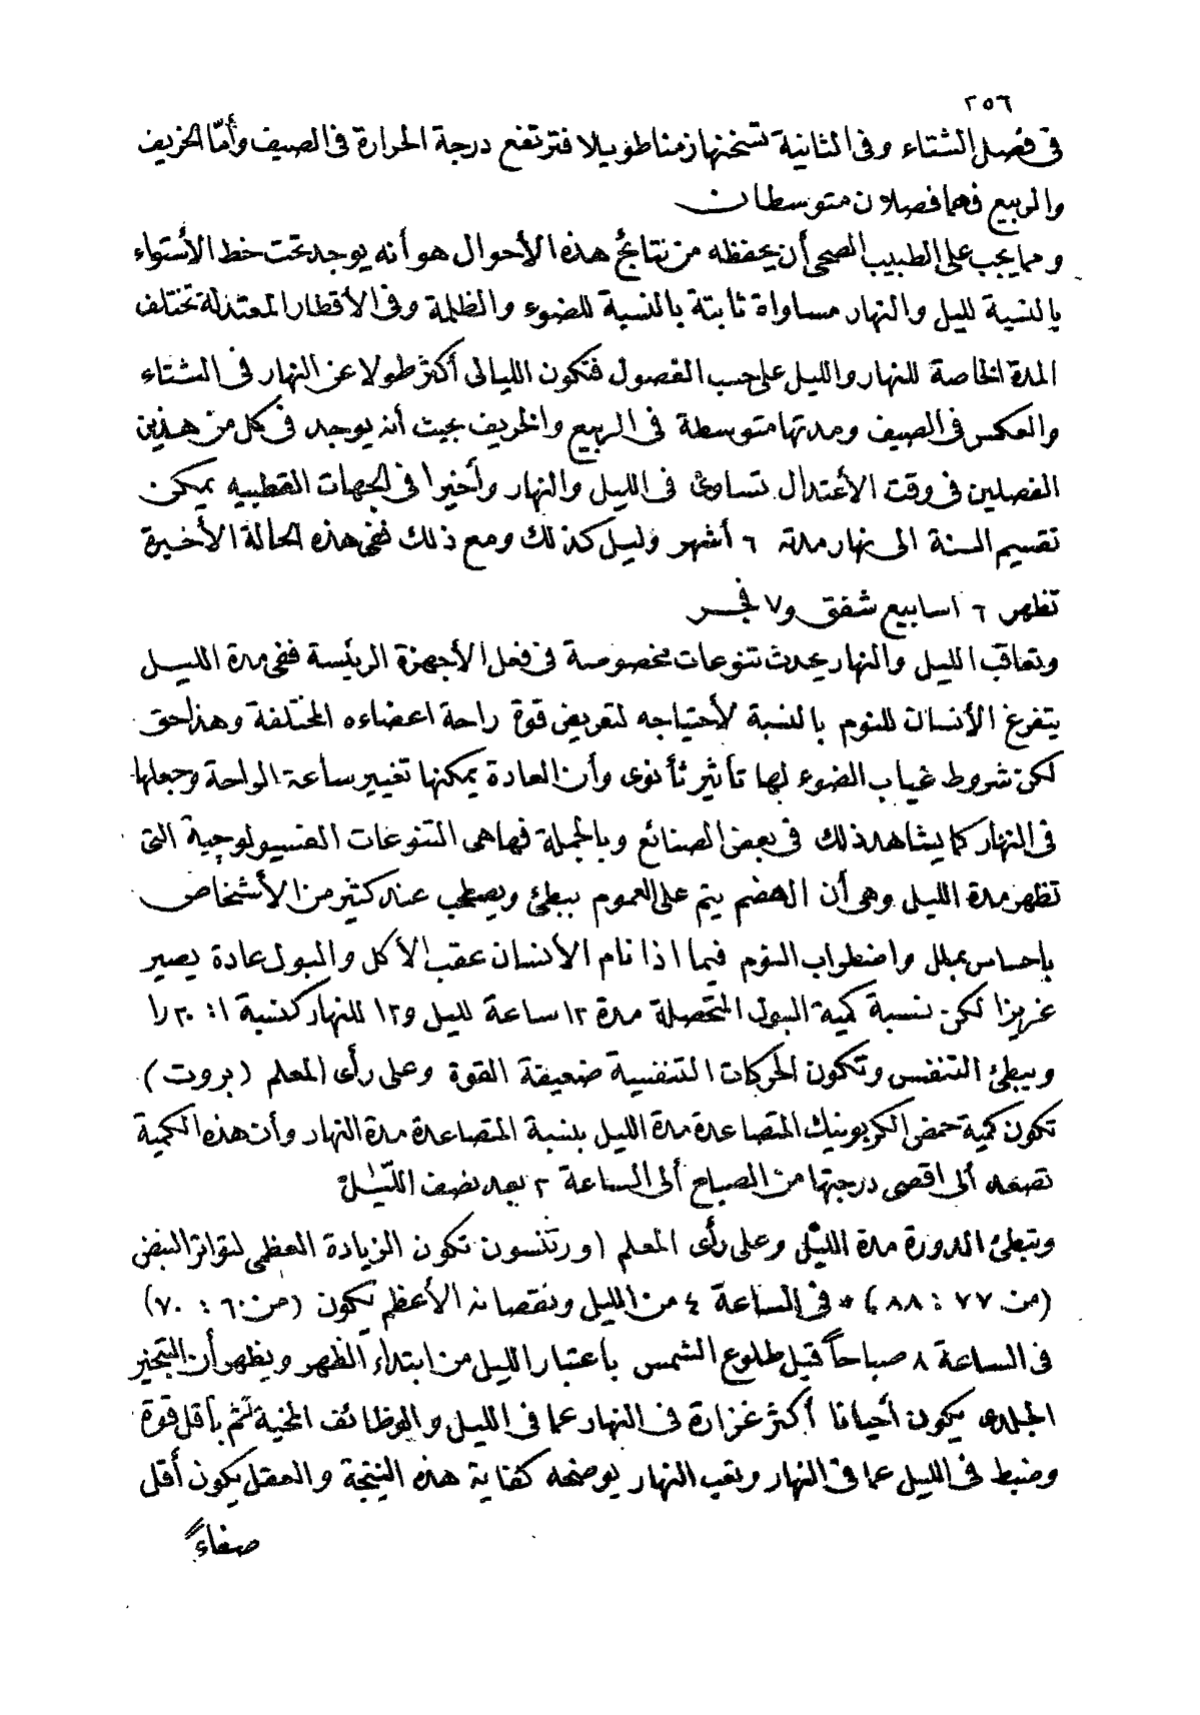 ٢٥٦
فى فصل الشتاء وفى الثانية تسخنها زمنا طويلا فترتفع درجة الحرارة فى الصيف وأمّا الخريف
والربيع فهما فصلان متوسطان
ومما يجب على الطبيب الصحى أن يحفظه من نتائج هذه الأحوال هو أنه يوجد تحت خط الأستواء
بالنسبة لليل والنهار مساواة ثابتة بالنسبة للضوء والظلمة وفى الأقطار المعتدلة تختلف
المدة الخاصة للنهار والليل على حسب الفصول فتكون الليالى أكثر طولا عن النهار فى الشتاء
والعكس فى الصيف ومدتها متوسطة فى الربيع والخريف بحيث أنه يوجد فى كل من هذين
الفصلين فى وقت الأعتدال تساوى فى الليل والنهار وأخيرا فى الجهات القطبيه يمكن
تقسيم السنة الى نهار مدته ٦ أشهر وليل كذلك ومع ذلك ففى هذه الحالة الأخيرة
تظهر ٦ اسابيع شفق و٧ فجر
وتعاقب الليل والنهار يحدث تنوعات مخصوصة فى فعل الأجهزة الرئيسة ففى مدة الليل
يتفرغ الأنسان للنوم بالنسبة لأحتياجه لتعويض قوة راحة اعضاءه المختلفة وهذا حق
لكن شروط غياب الضوء لها تأثير ثأنوى وأن العادة يمكنها تغيير ساعة الراحة وجعلها
فى النهار كما يشاهد ذلك فى بعض الصنائع وبالجملة فها هى التنوعات الفسيولوجية التى
تظهر مدة الليل وهى أن الهضم يتم على العموم ببطئ ويصطحب عند كثير من الأشخاص
بإحساس بملل واضطراب النوم فيما اذا نام الأنسان عقب الأكل والبول عادة يصير
غريزا لكن نسبة كمية البول المتحصلة مدة ١٢ ساعة لليل و١٢ للنهار كنسبة ١ : ٢٠را
ويبطئ التنفس وتكون الحركات التنفسية ضعيفة القوة وعلى رأى المعلم (بروت)
تكون كمية حمض الكربونيك المتصاعدة مدة الليل بنسبة المتصاعدة مدة النهار وأن هذه الكمية
تصعد ألى اقصى درجتها من الصباح ألى الساعة ٢ بعد نصف اللّيل
وتبطئ الدورة مدة الليل وعلى رأى المعلم اورتنسون تكون الزيادة العظمى لتواتر النبض
(من ٧٧ : ٨٨) فى الساعة ٤ من الليل ونقصانه الأعظم يكون (من ٦٠ : ٧٠)
فى الساعة ٨ صباحاً قبل طلوع الشمس بأعتبار الليل من ابتداء الظهر ويظهر أن التبخير
الجلدى يكون أحيانا أكثر غزارة فى النهار عما فى الليل والوظائف المخية تتم بأقل قوة
وضبط فى الليل عما فى النهار وتعب النهار يوضحه كفاية هذه النتيجة والعقل يكون أقل
صفاءً